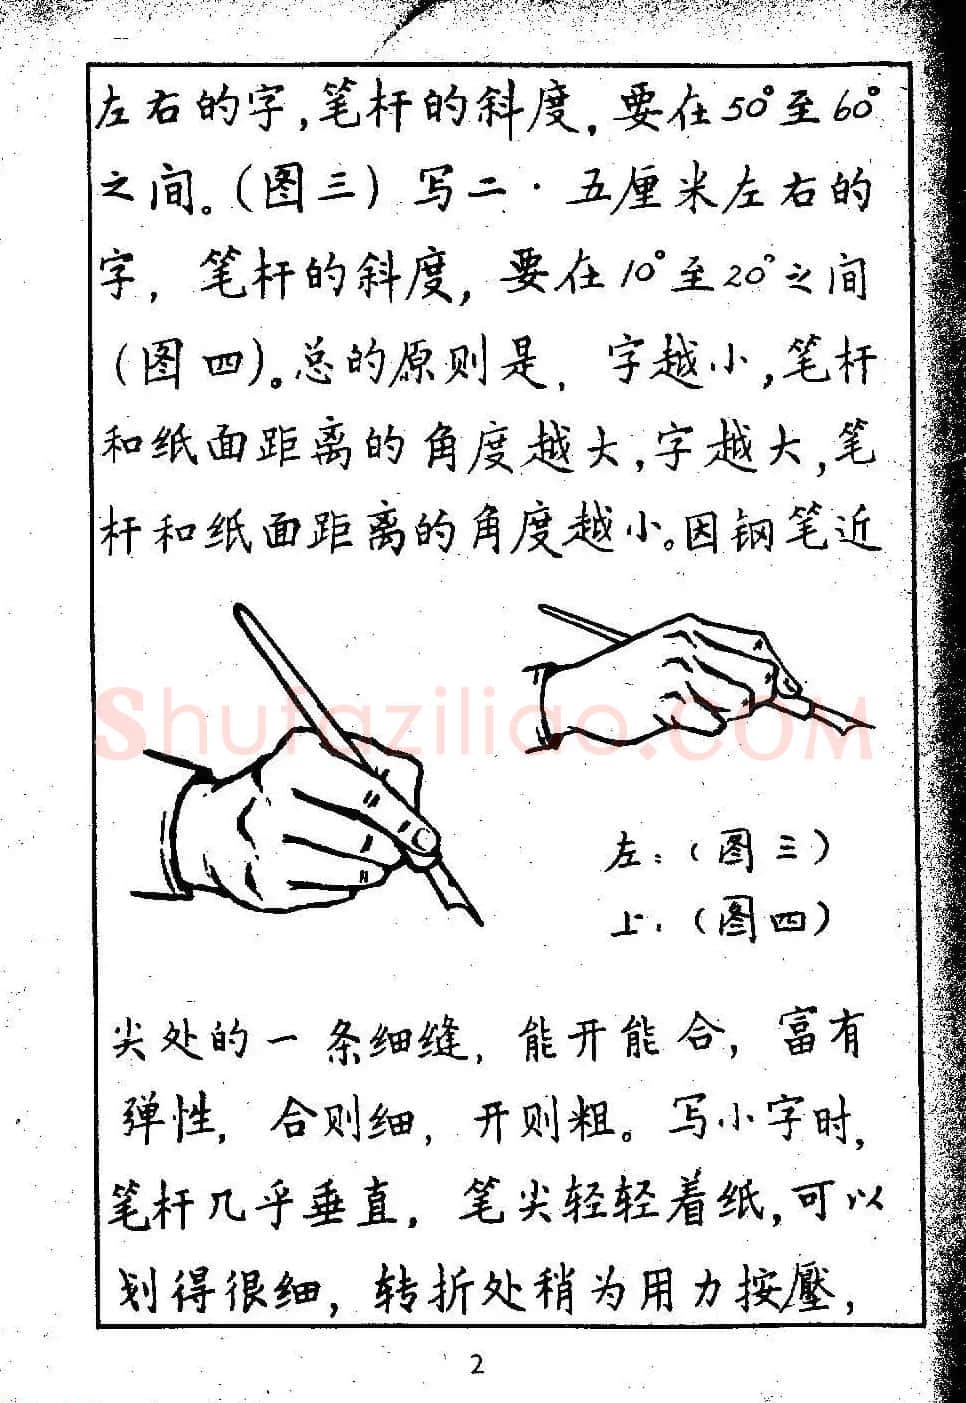 左右的字,笔杆的斜度,要在50°至60°
之间。(图三)写二·五厘米左右的
字,笔杆的斜度,要在10°至20°之间
(图四)。总的原则是,字越小,笔杆
和纸面距离的角度越大,字越大,笔
杆和纸面距离的角度越小。因钢笔近
Shufaziliao.COM
左:(图三)
上:(图四)
尖处的一条细缝,能开能合,富有
弹性,合则细,开则粗。写小字时,
笔杆几乎垂直,笔尖轻轻着纸,可以
划得很细,转折处稍为用力按壓,
2